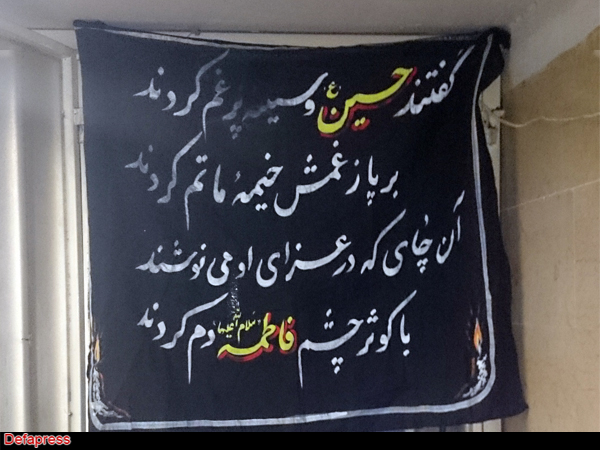 گفتند حسین (ع) و سینه پر غم کردند
بر پا ز غمش خیمهٔ ماتم کردند
آن چای که در عزای او می نوشند
با کوثر چشم فاطمه سلام الله علیها دم کردند
Defapress